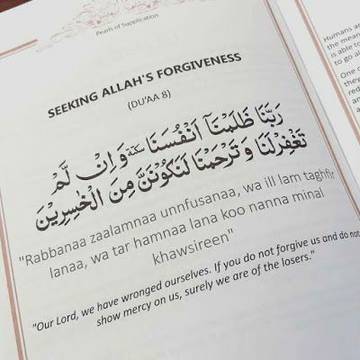 Pearls of Supplication
SEEKING ALLAH'S FORGIVENESS
(DU'AA 8)
رَبَّنَا ظَلَمْنَآ اَنْفُسَنَا سكتة وَ اِنْ لَّمْ
تَغْفِرْ لَنَا وَ تَرْحَمْنَا لَنَكُوْنَنَّ مِنَ الْخٰسِرِيْنَ
"Rabbanaa zaalamnaa unnfusanaa, wa ill lam taghfir
lanaa, wa tar hamnaa lana koo nanna minal
khawsireen"
"Our Lord, we have wronged ourselves. If you do not forgive us and do not
show mercy on us, surely we are of the losers."
Humans a
the mean
is able t
to go al
One
the
red
an